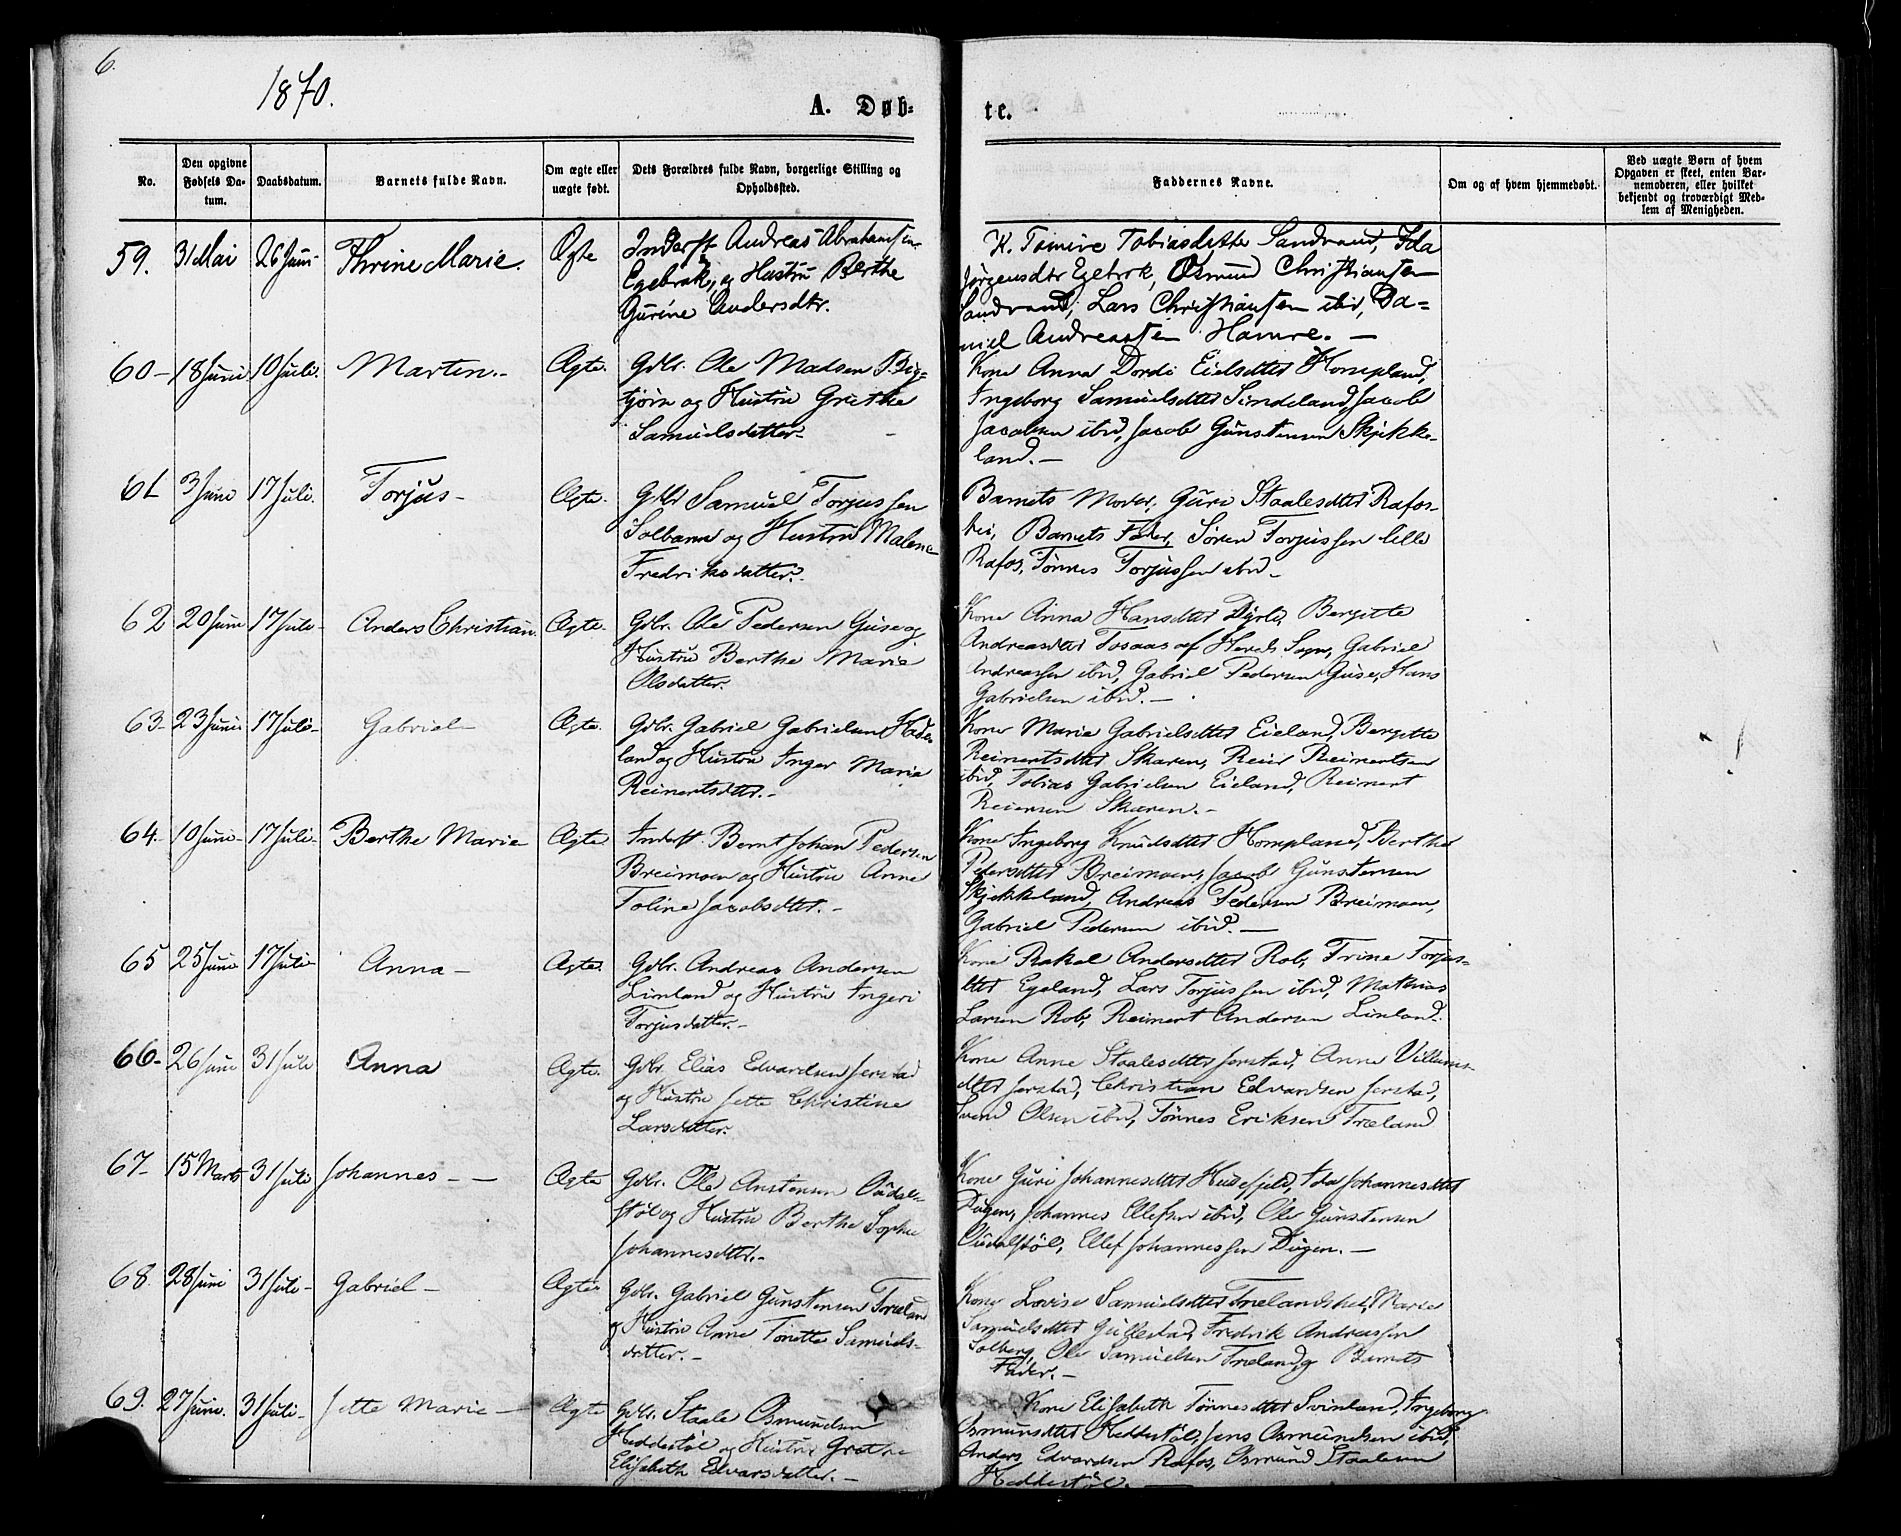 6.
1870.
A. Døb-
te.
No.
Den opgivne Fødsels Da-
tum.
Daabsdatum.
Barnets fulde Navn.
Om ægte eller
uægte født.
Dets Forældres fulde Navn, borgerlige Stilling og
Opholdssted.
Faddernes Navne.
Om og af hvem hjemmedøbt.
Ved uægte Børn af hvem
Opgaven er skeet, enten Bar-
nemoderen, eller hvilket
bekjendt og troværdigt Med-
lem af Menigheden.
59. 31 Mai 26 Juni Thrine Marie. Ægte
Inderst Andreas Abrahamsen
Egebrok, og Hustru Berthe
Gurine Andersdtr.
K. Tomine Tobiasdatter Sandvand, Ida
Jørgensdtr Egebrok, Osmund Christiansen
Sandvand, Lars Christiansen ibid, Da-
niel Andreassen Hamre. —
60 - 18 Juni 10 Juli. Morten. - Ægte.
Gdbr. Ole Madsen Big-
tjörn og Hustru Grethe
Samuelsdatter -
Kone Anna Dorde Eielsdtter Hompland,
Ingeborg Samuelsdtter Sindeland, Jacob
Jacobsen ibid, Jacob Gunstensen Skjekke-
land. —
61 3 Juni 17 Juli. Torjus - Ægte.
Gdbr Samuel Torjussen
Solbann og Hustru Malene
Fredriksdatter.
Barnets Moder, Guri Staalesdtter Rafos-
hei, Barnets Fader, Søren Torjussen lille
Rafos, Tönnes Torjussen ibid -
62 20 Juni 17 Juli - Anders Christian. Ægte.
Gdbr. Ole Pedersen Guse og
Hustru Berthe Marie
Olsdatter.
Kone Anna Hansdtter Dyrli, Bergitte
Andreasdtter Tosaas af Hereds Sogn, Gabriel
Andreassen ibid, Gabriel Pedersen Guse, Hans
Gabrielsen ibid. —
63 - 23 Juni 17 Juli - Gabriel - Ægte.
Gdbr. Gabriel Gabrielsen Hade-
land og Hustru Inger Maria
Reinertsdtter. -
Kone Maria Gabrielsdtter Eieland, Bergitte
Reinertsdtter Skaren, Reier Reinertsen
ibid, Tobias Gabrielsen Eieland, Reinert
Reiersen Skaren. -
64. 10 Juni - 17 Juli - Berthe Marie Ægte
Inderst. Bernt Johan Pedersen
Breimoen og Hustru Anne
Toline Jacobsdtter. -
Kone Ingeborg Knudsdtter Hompland, Berthe
Pedersdtter Breimoen, Jacob Gunstensen
Skjekkeland, Andreas Pedersen Breimoen,
Gabriel Pedersen ibid. —
65 25 Juni 17 Juli Anna - Ægte.
Gdbr. Andreas Andersen
Linland og Hustru Ingeri
Torjusdatter. -
Kone Rakel Andersdtter Rob, Trine Torjus-
dtter Egeland, Lars Torjussen ibid, Mathias
Larsen Rob, Reinert Andersen Linland.
66 - 26 Juni 31 Juli Anna Ægte.
Gdbr. Elias Edvardsen Jerstad
og Hustru Jette Christine
Larsdatter.
Kone Anne Staalesdtter Jerstad, Anne Villums-
dtter Jerstad, Christian Edvardsen Jerstad,
Svend Olsen ibid, Tönnes Eriksen Træland
67 - 15 Marts 31 Juli Johannes - — Ægte
Gdbr. Ole Anstensen Oudal-
stöl og Hustru Berthe Sophie
Johannesdtter. -
Kone Guri Johannesdtter Hudefjeld, Ida Johannesdtter
Dugen, Johannes Ellefsen ibid, Ole Gunstensen
Oudalstöl, Ellef Johannessen Dugen. —
68. 28 Juni 31 Juli - Gabriel - Ægte
Gdbr. Gabriel Gunstensen Træland
og Hustru Anne Tonette Samuels-
datter. -
Kone Lovise Samuelsdtter Trælandshei, Marie
Samuelsdtter Gullestad, Fredrik Andreassen
Solberg, Ole Samuelsen Træland, Barnets
Fader. -
69. 27 Juni. 31 Juli - Jette Marie - Ægte
Gdbr. Staale Osmundsen
Heddestöl og Hustru Grethe
Elisabeth Edvarsdatter. -
Kone Elisabeth Tönnesdtter Svinland, Ingeborg
Osmunsdtter Heddestöl, Jens Osmundsen ibid,
Anders Edvardsen Rafos, Osmund Staalesen
Heddestöl. —